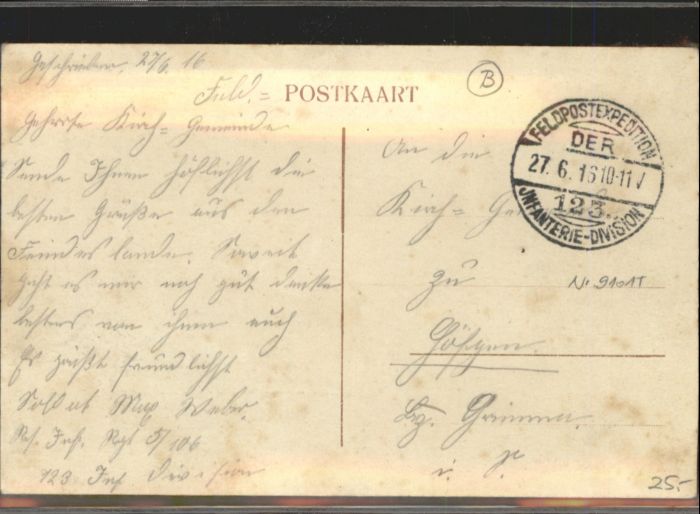 Geschrieben, 27/6. 16
Feld.= POSTKAART
Geehrte Kirch= Gemeinde
Sende Ihnen höflichst die
besten Grüße aus den
Feindeslande. Soweit
geht es mir noch gut denke
bestens von ihnen auch
Es grüßt freundlichst
Soldat Max Weber.
Res. Inf. Regt 5/106
123 Inf Division
B
FELDPOSTEXPEDITION
DER
27. 6. 16 10-11 V
123.
INFANTERIE-DIVISION
An die
Kirch= Ge
zu
Nr. 9101T
Höfgen.
Bz. Grimma.
i. S.
25.-